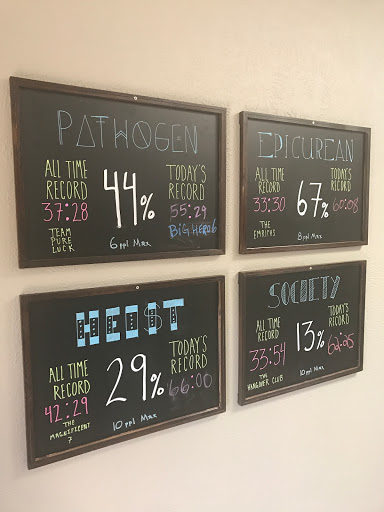 PATHOGEN
ALL TIME
RECORD
37:28
TEAM
PURE
LUCK
44%
6 ppl Max
TODAY'S
RECORD
55:29
BIG HERO 6
EPICUREAN
ALL TIME
RECORD
33:30
THE
67%
8 ppl Max
TODAY'S
RECORD
60:08
HEIST
ALL TIME
RECORD
42:29
THE
MAGNIFICENT
7
29%
10 ppl Max
TODAY'S
RECORD
66:00
SOCIETY
ALL TIME
RECORD
33:54
THE
HANGOVER CLUB
13%
10 ppl Max
TODAY'S
RECORD